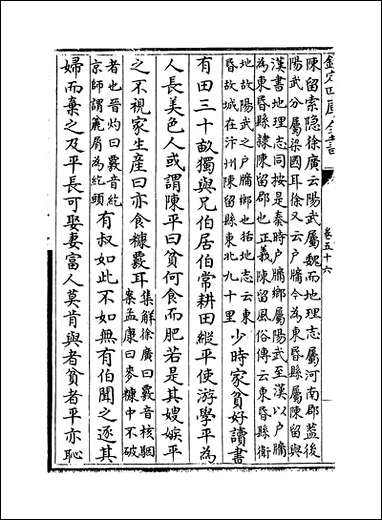 欽定四庫全書
卷五十六
陳留索隱徐廣云陽武屬魏而地理志屬河南郡蓋後
陽武分屬梁國耳徐又云戶牖今為東昏縣屬陳留與
漢書地理志同按是秦時戶牖鄉屬陽武至漢以戶牖
為東昏縣隸陳留郡也正義陳留風俗傳云東昏縣衛
地故陽武之戶牖鄉也括地志云東
昏故城在汴州陳留縣東北九十里
少時家貧好讀書
有田三十畝獨與兄伯居伯常耕田縱平使游學平為
人長美色人或謂陳平曰貧何食而肥若是其嫂嫉平
之不視家生產曰亦食糠覈耳
集解徐廣曰覈音核駰
案孟康曰麥糠中不破
者也晉灼曰覈音紇
京師謂麄屑為紇頭
有叔如此不如無有伯聞之逐其
婦而棄之及平長可娶妻富人莫肯與者貧者平亦恥